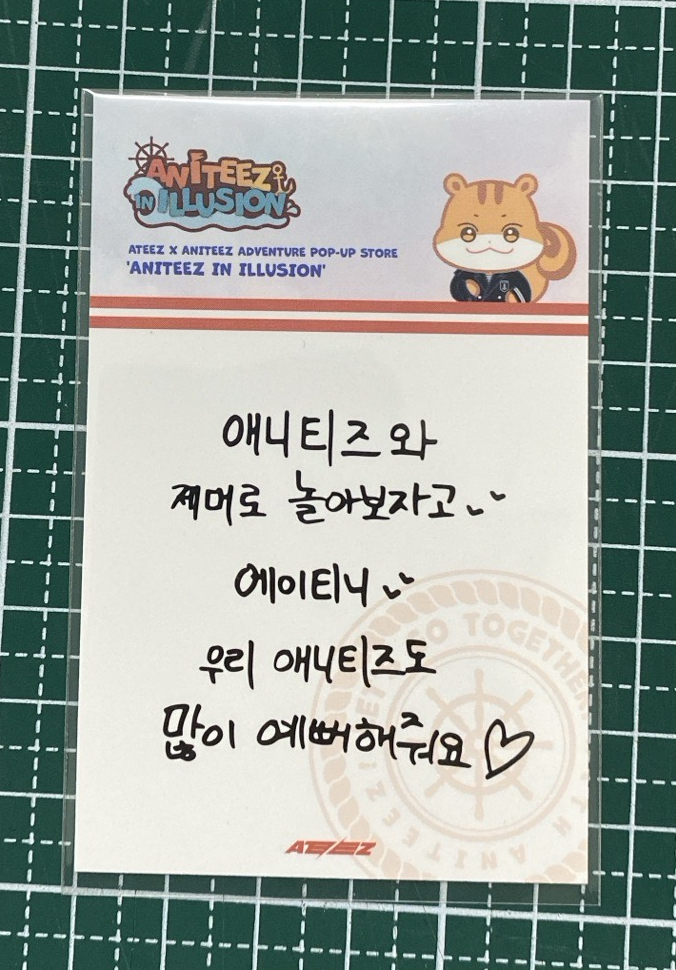 ANITEEZ
IN ILLUSION
ATEEZ X ANITEEZ ADVENTURE POP-UP STORE
'ANITEEZ IN ILLUSION'
애니티즈와
제머로 놀아보자고
에이티니
우리 애니티즈도
많이 예뻐해줘요♡
GO TOGETHER WITH ANITEEZ
ATEEZ